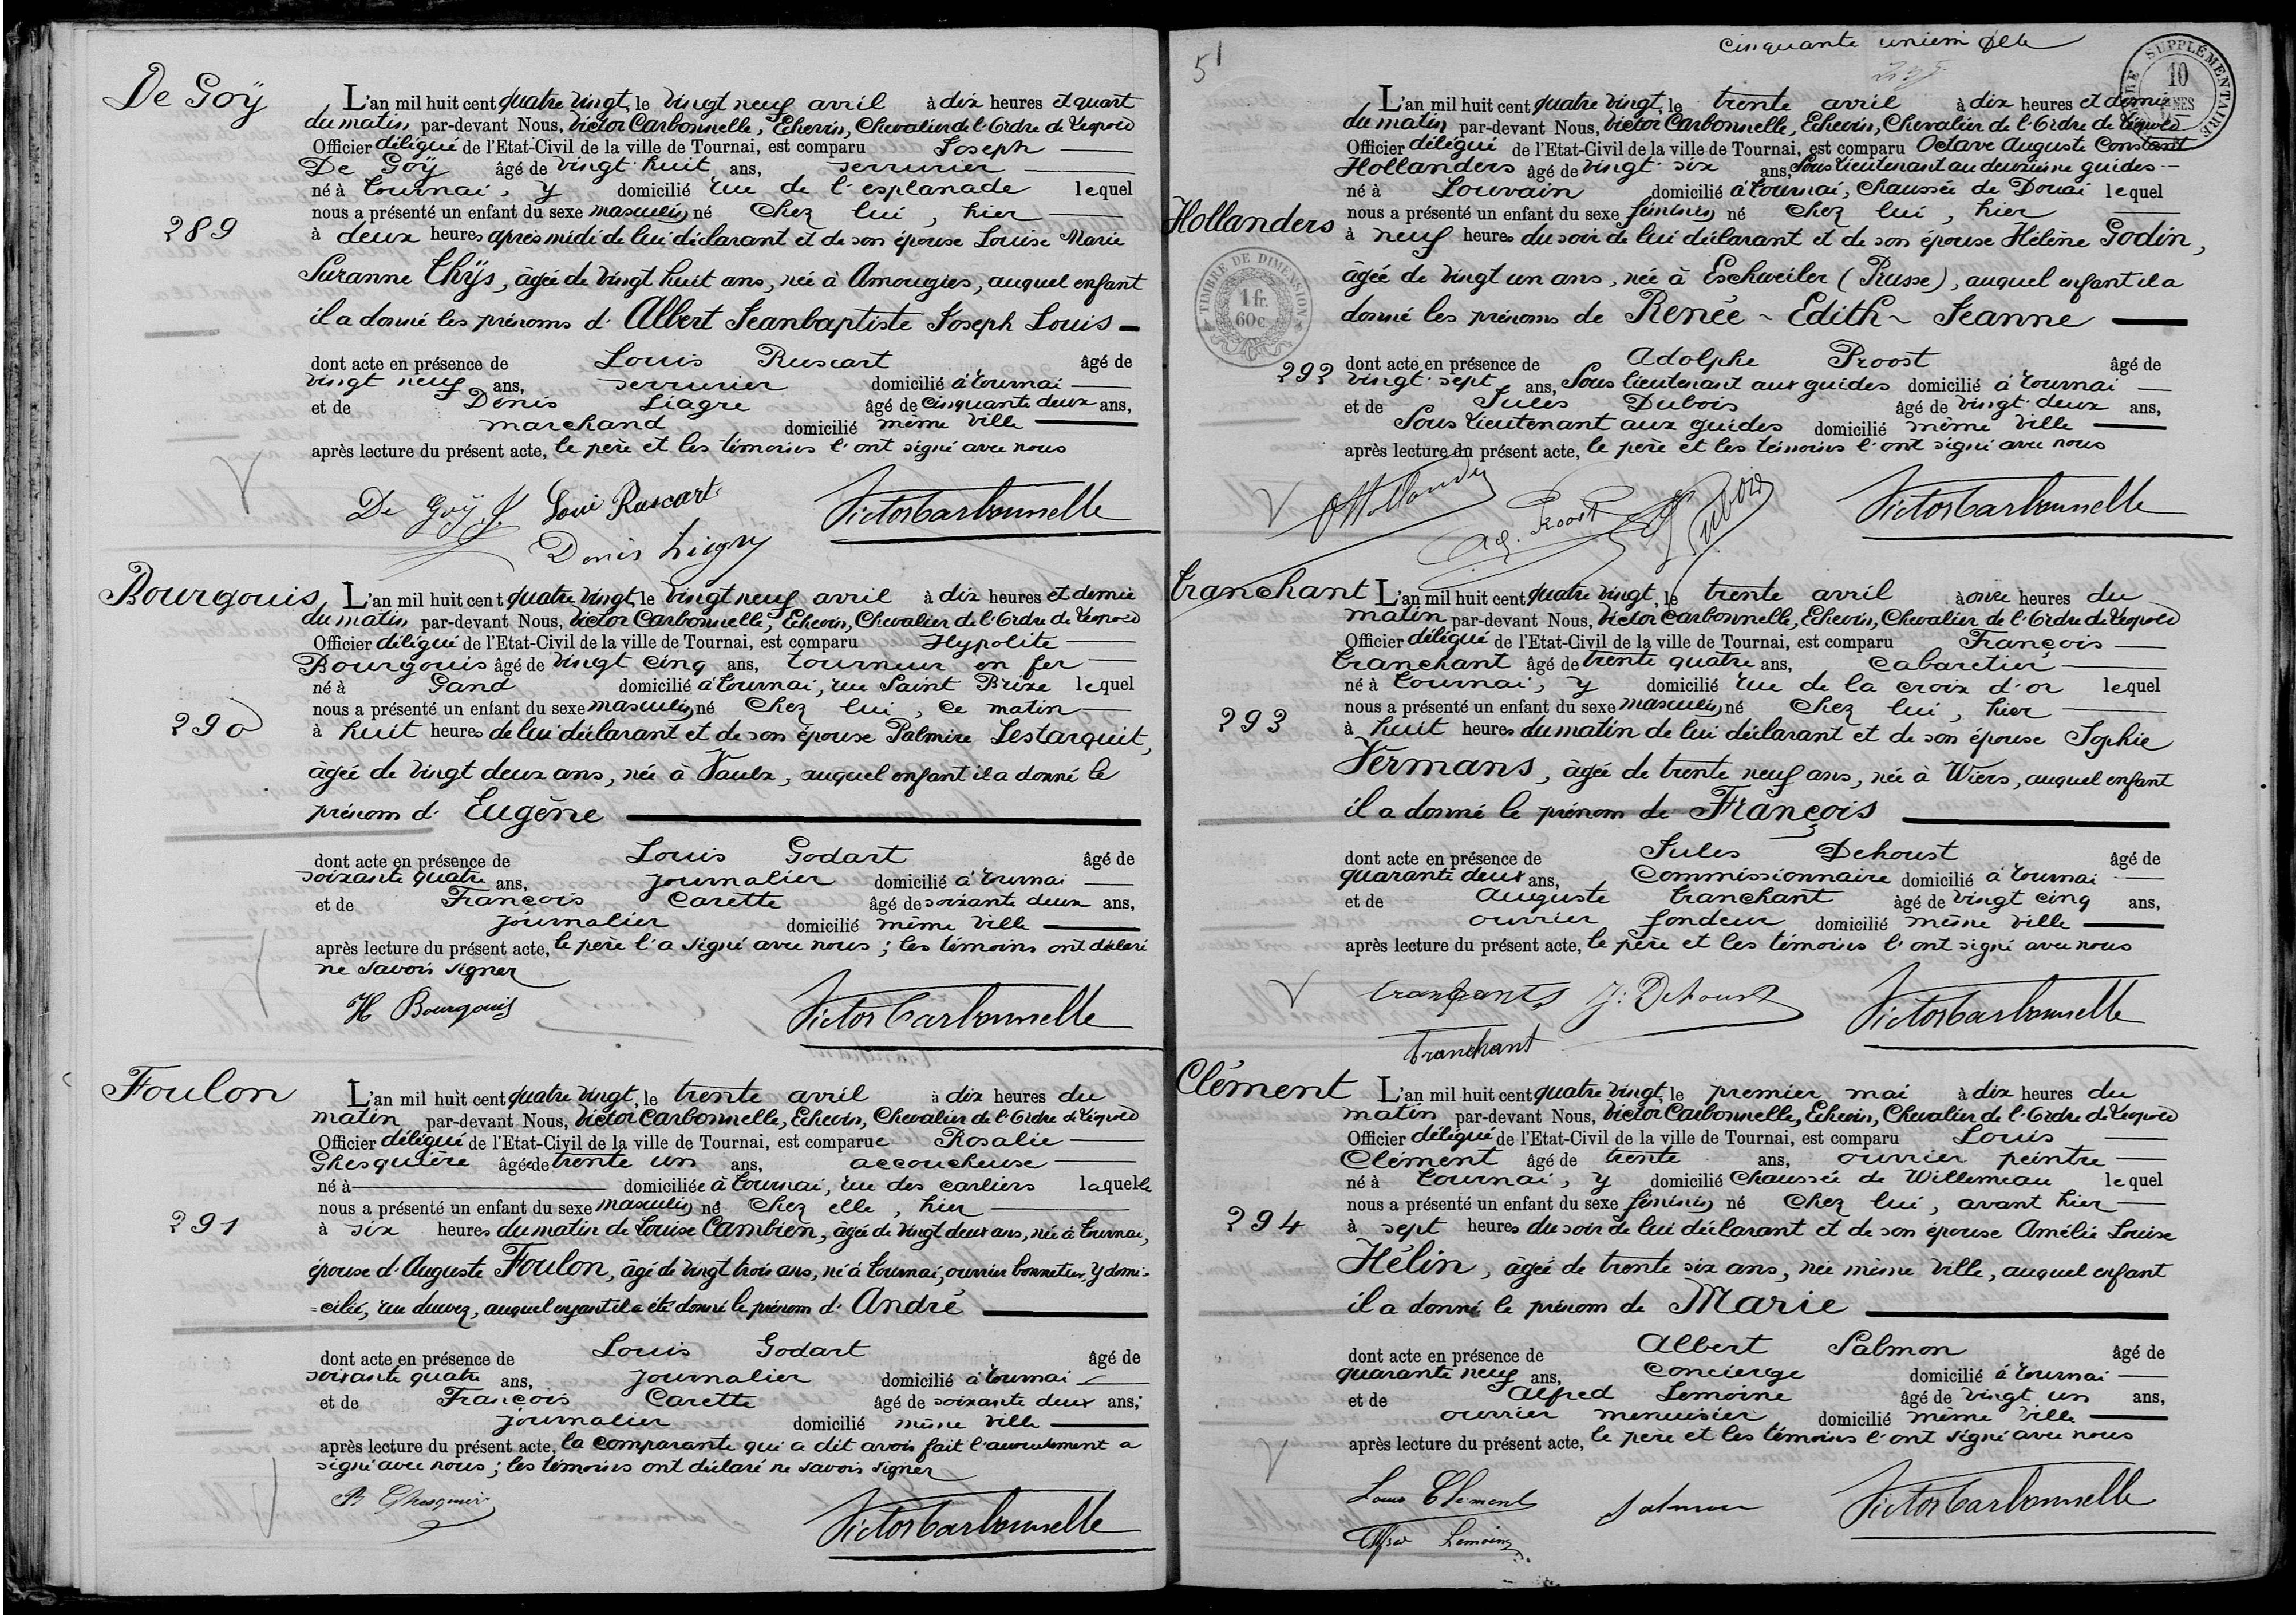 De Goÿ
L'an mil huit cent quatre vingt, le vingt neuf avril à dix heures et quart
du matin par-devant Nous, Victor Carbonnelle, Echevin, Chevalier de l'Ordre de Léopold
Officier délégué de l'Etat-Civil de la ville de Tournai, est comparu Joseph
De Goÿ âgé de vingt huit ans, serrurier
né à Tournai, y domicilié rue de l'esplanade lequel
nous a présenté un enfant du sexe masculin né chez lui, hier
289
à deux heures après midi de lui déclarant et de son épouse Louise Marie
Suzanne Thÿs, âgée de vingt huit ans, née à Amougies, auquel enfant
il a donné les prénoms d'Albert Jeanbaptiste Joseph Louis
dont acte en présence de Louis Ruscart âgé de
vingt neuf ans, serrurier domicilié à Tournai
et de Denis Liagre âgé de cinquante deux ans,
marchand domicilié même ville
après lecture du présent acte, le père et les témoins l'ont signé avec nous
De Goÿ J. Loui Ruscart Victor Carbonnelle
Denis Liagre
Bourgouis
L'an mil huit cent quatre vingt, le vingt neuf avril à dix heures et demie
du matin par-devant Nous, Victor Carbonnelle, Echevin, Chevalier de l'Ordre de Léopold
Officier délégué de l'Etat-Civil de la ville de Tournai, est comparu Hypolite
Bourgouis âgé de vingt cinq ans, tourneur en fer
né à Gand domicilié à Tournai, rue Saint Brixe lequel
nous a présenté un enfant du sexe masculin né chez lui, ce matin
290
à huit heures de lui déclarant et de son épouse Palmire Lestarquit,
âgée de vingt deux ans, née à Vaulx, auquel enfant il a donné le
prénom d'Eugène
dont acte en présence de Louis Godart âgé de
soixante quatre ans, journalier domicilié à Tournai
et de François Carette âgé de soixante deux ans,
journalier domicilié même ville
après lecture du présent acte, le père l'a signé avec nous; les témoins ont déclaré
ne savoir signer
H Bourgouis Victor Carbonnelle
Foulon
L'an mil huit cent quatre vingt, le trente avril à dix heures du
matin par-devant Nous, Victor Carbonnelle, Echevin, Chevalier de l'Ordre de Léopold
Officier délégué de l'Etat-Civil de la ville de Tournai, est comparue Rosalie
Ghesquière âgée de trente un ans, accoucheuse
né à domiciliée à Tournai, rue des carliers laquelle
nous a présenté un enfant du sexe masculin né chez elle, hier
291
à six heures du matin de Louise Cambien, âgée de vingt deux ans, née à Tournai,
épouse d'Auguste Foulon, âgé de vingt trois ans, né à Tournai, ouvrier bonnetier, y domi-
=cilié, rue duwez, auquel enfant il a été donné le prénom d'André
dont acte en présence de Louis Godart âgé de
soixante quatre ans, journalier domicilié à Tournai
et de François Carette âgé de soixante deux ans;
journalier domicilié même ville
après lecture du présent acte, la comparante qui a dit avoir fait l'accouchement a
signé avec nous; les témoins ont déclaré ne savoir signer
R Ghesquière Victor Carbonnelle
51
cinquante unièm
TIMBRE SUPPLÉMENTAIRE
10
L'an mil huit cent quatre vingt, le trente avril à dix heures et demie
du matin par-devant Nous, Victor Carbonnelle, Echevin, Chevalier de l'Ordre de Léopold
Officier délégué de l'Etat-Civil de la ville de Tournai, est comparu Octave Auguste Constant
Hollanders âgé de vingt six ans, Sous lieutenant au deuxième guides
né à Louvain domicilié à Tournai, Chaussée de Douai lequel
Hollanders
nous a présenté un enfant du sexe féminin né chez lui, hier
à neuf heures du soir de lui déclarant et de son épouse Hélène Godin,
TIMBRE DE DIMENSION
1 fr.
60 c
âgée de vingt un ans, née à Eschweiler (Prusse), auquel enfant il a
donné les prénoms de Renée - Edith - Jeanne
292
dont acte en présence de Adolphe Proost âgé de
vingt sept ans, Sous lieutenant aux guides domicilié à Tournai
et de Jules Dubois âgé de vingt deux ans,
Sous lieutenant aux guides domicilié même ville
après lecture du présent acte, le père et les témoins l'ont signé avec nous
OHollanders Ad. Proost J Dubois Victor Carbonnelle
Tranchant
L'an mil huit cent quatre vingt, le trente avril à onze heures du
matin par-devant Nous, Victor Carbonnelle, Echevin, Chevalier de l'Ordre de Léopold
Officier délégué de l'Etat-Civil de la ville de Tournai, est comparu François
Tranchant âgé de trente quatre ans, cabaretier
né à Tournai, y domicilié rue de la croix d'or lequel
nous a présenté un enfant du sexe masculin né chez lui, hier
293
à huit heures du matin de lui déclarant et de son épouse Sophie
Vermans, âgée de trente neuf ans, née à Wiers, auquel enfant
il a donné le prénom de François
dont acte en présence de Jules Dehoust âgé de
quarante deux ans, Commissionnaire domicilié à Tournai
et de Auguste Tranchant âgé de vingt cinq ans,
ouvrier fondeur domicilié même ville
après lecture du présent acte, le père et les témoins l'ont signé avec nous
Tranchant J. Dehoust Victor Carbonnelle
Tranchant
Clément
L'an mil huit cent quatre vingt, le premier mai à dix heures du
matin par-devant Nous, Victor Carbonnelle, Echevin, Chevalier de l'Ordre de Léopold
Officier délégué de l'Etat-Civil de la ville de Tournai, est comparu Louis
Clément âgé de trente ans, ouvrier peintre
né à Tournai, y domicilié Chaussée de Willemeau lequel
nous a présenté un enfant du sexe féminin né chez lui, avant hier
294
à sept heures du soir de lui déclarant et de son épouse Amélie Louise
Hélin, âgée de trente six ans, née même ville, auquel enfant
il a donné le prénom de Marie
dont acte en présence de Albert Salmon âgé de
quarante neuf ans, concierge domicilié à Tournai
et de Alfred Lemoine âgé de vingt un ans,
ouvrier menuisier domicilié même ville
après lecture du présent acte, le père et les témoins l'ont signé avec nous
Louis Clément Salmon Victor Carbonnelle
Alfred Lemoine